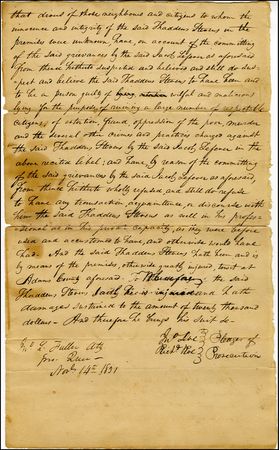 that divers of those neighbours and citizens to whom the
innocence and integrity of the said Thaddeus Stevens in the
premises were unknown, have, on account of the committing
of the said grievances by the said Jacob Lefever as aforesaid
from thence hitherto suspected and believed and still do sus-
pect and believe the said Thaddeus Stevens to have been and
to be a person guilty of wilful and malicious
lying for the purpose of a large number of respectable
citizens, of extortion fraud, oppression of the poor, murder
and the several other crimes and practices charged against
the said Thaddeus Stevens by the said Jacob Lefever in the
above recited libel; and have by reason of the committing
of the said grievances by the said Jacob Lefever as aforesaid,
from thence hitherto wholly refused, and still do refuse
to have any transaction, acquaintance, or discourse with
him the said Thaddeus Stevens as well in his profes-
sional as in his private capacity, as they were before
used and accustomed to have, and otherwise would have
had. And the said Thaddeus Stevens hath been and is
by means of the premises, otherwise greatly injured, to wit at
Adams County aforesaid. Wherefore the said
Thaddeus Stevens saith he is injured and hath
damages sustained to the amount of twenty thousand
dollars - And therefore he brings his suit &c.
Z. Fuller Atty
pro. Quer
Novr. 14th. 1831
Jno Doe
Richd. Roe
Pledges of
Prosecution